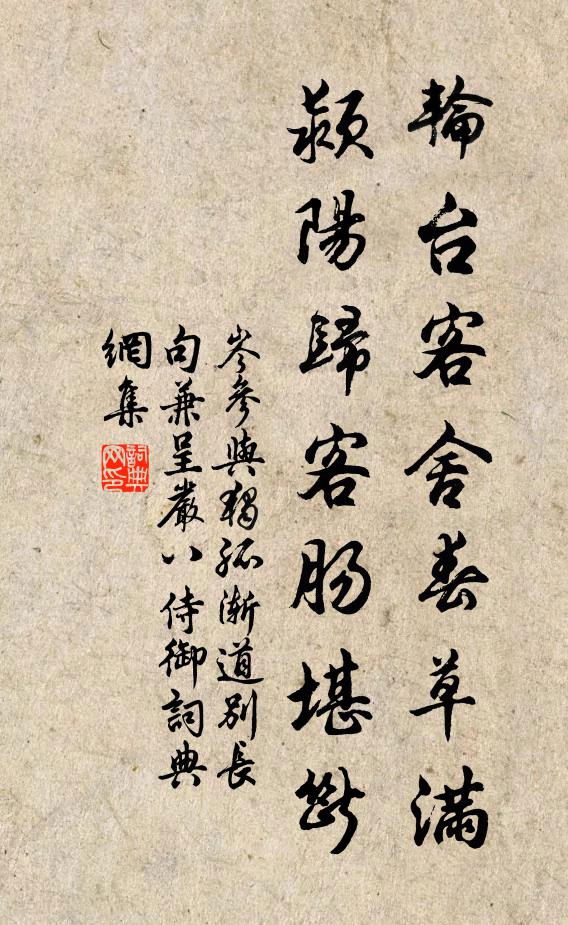 輪台客舍春草滿
潁陽歸客腸堪斷
岑參與獨孤漸道別長
句兼呈嚴八侍御詞典
網集
詞典
网印